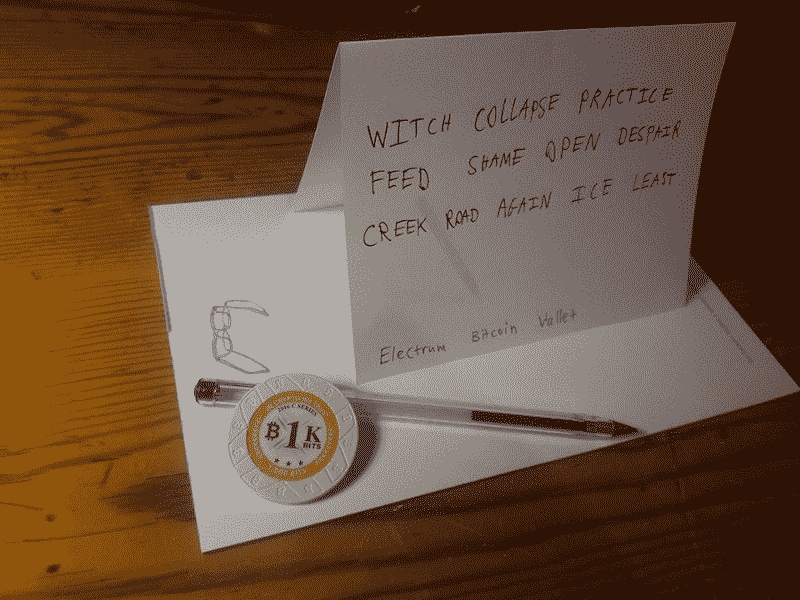 WITCH COLLAPSE PRACTICE
FEED SHAME OPEN DESPAIR
CREEK ROAD AGAIN ICE LEAST
Electrum Bitcoin Wallet
2016 C SERIES
฿1K
BITS